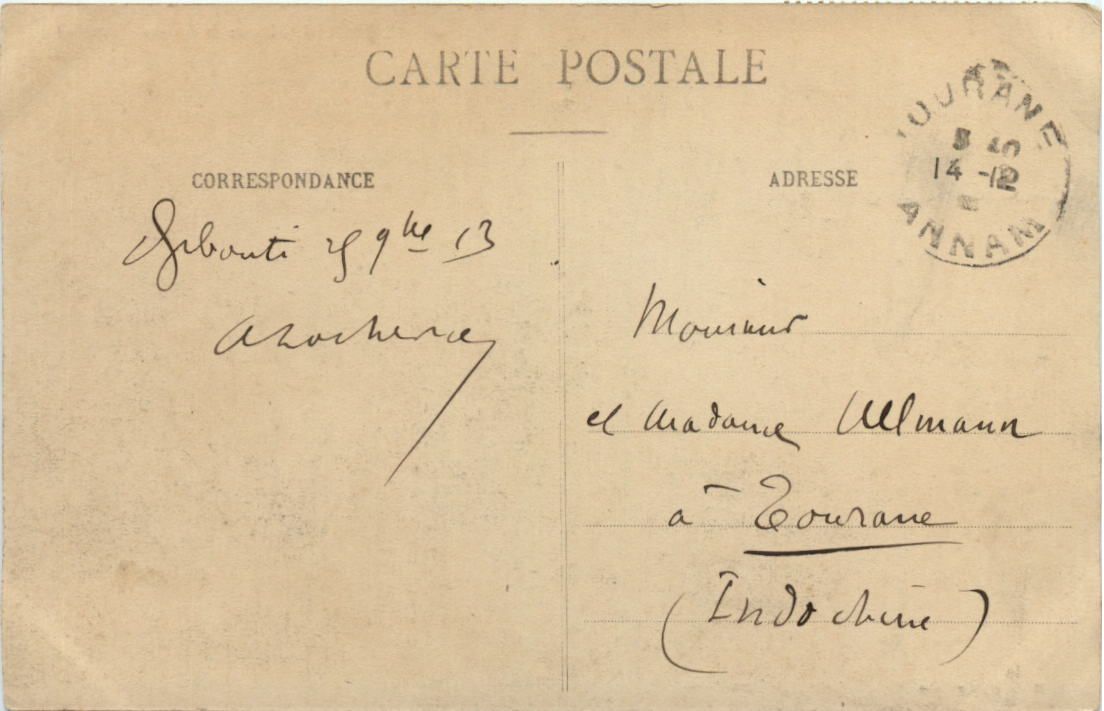 CARTE POSTALE
CORRESPONDANCE
Djibouti 25 9bre 13
ADRESSE
TOURANE
14 -12
ANNAM
Monsieur
et Madame Ullmann
à Tourane
(Indochine)